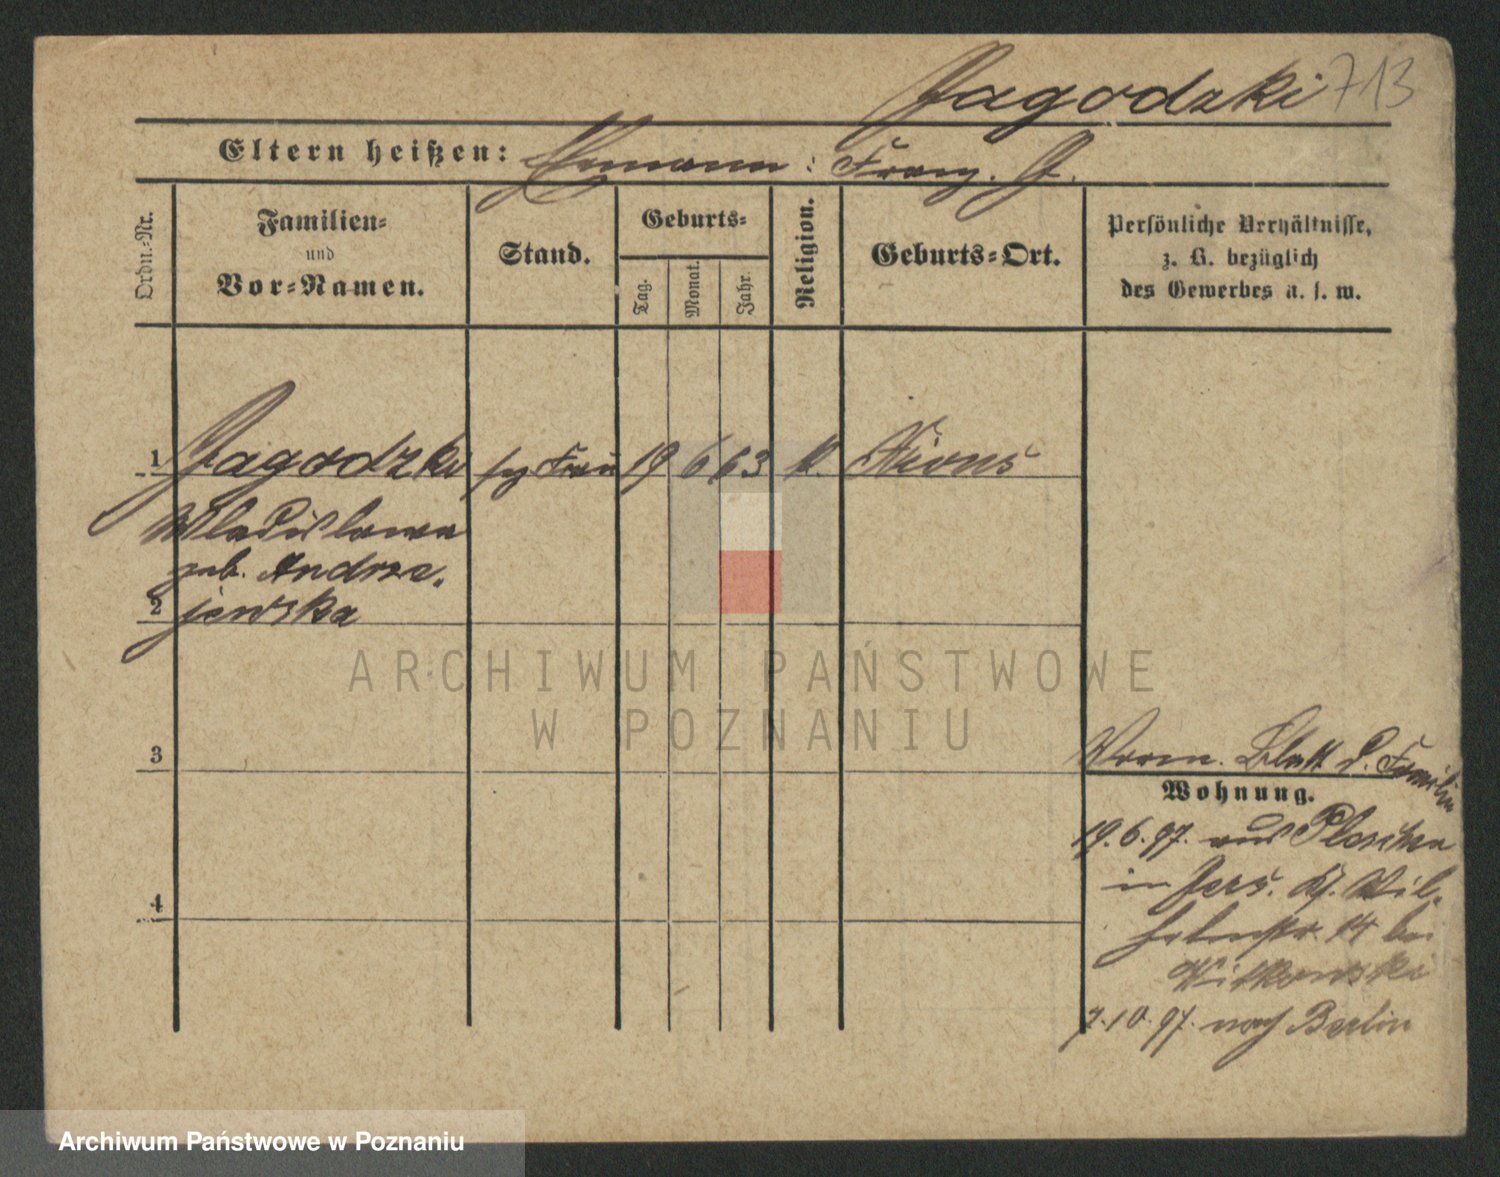 Jagodzki 713
Eltern heißen: Ehemann: Franz J.
Ordn.-Nr.
Familien-
und
Vor-Namen.
Stand.
Geburts-
Tag.
Monat.
Jahr.
Religion.
Geburts-Ort.
Persönliche Verhältnisse,
z. B. bezüglich
des Gewerbes u. s. w.
1 Jagodzki Frau 19 6 63 k. Xions
Wladislawa
geb. Andrze-
2 jewska
3
4
Verm. Blatt d. Familie
Wohnung.
19.6.97. aus
in Jers. Wil-
helmstr. 14 bei
Witkowski
7.10.97. nach Berlin
ARCHIWUM PAŃSTWOWE
W POZNANIU
Archiwum Państwowe w Poznaniu